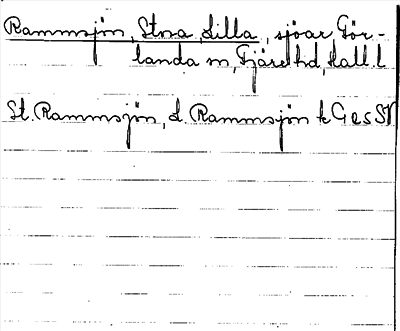 Rammsjön, Stora, Lilla, sjöar Gör-
landa sn, Fjäre hd, Hall. l.
St. Rammsjön, L. Rammsjön k GesSV